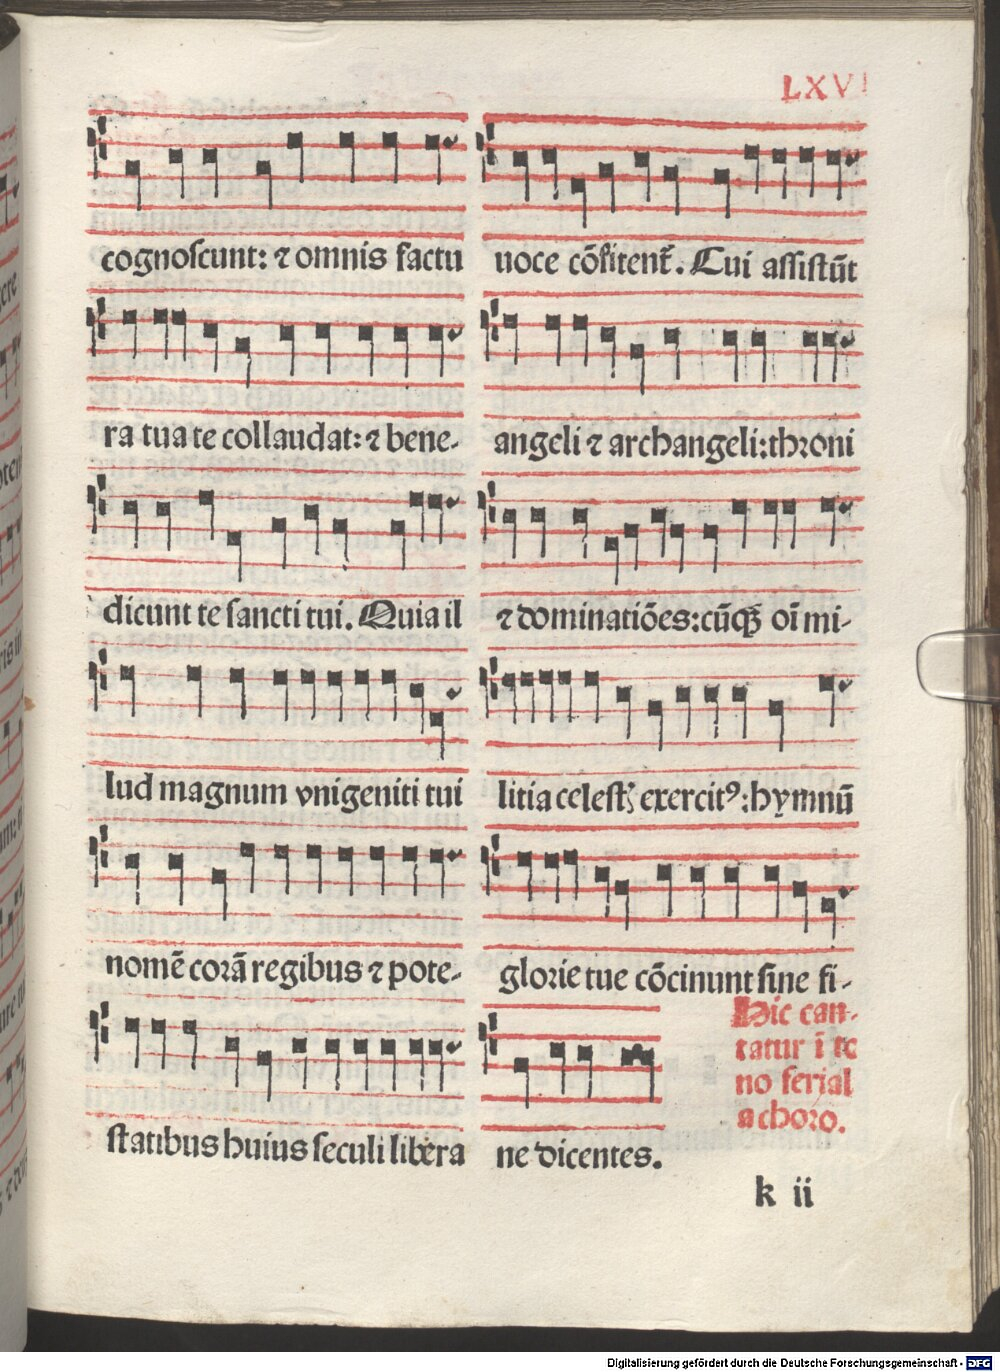 LXVI
cognoscunt: ⁊ omnis factu
ra tua te collaudat: ⁊ bene-
dicunt te sancti tui. Quia il
lud magnum vnigeniti tui
nomē corā regibus ⁊ pote-
statibus huius seculi libera
uoce cōfitent̃. Cui assistūt
angeli ⁊ archangeli: throni
⁊ dominatiōes: cūqꝫ oī mi-
litia celest exercitꝰ: hymnū
glorie tue cōcinunt sine fi-
ne dicentes.
Hic can-
tatur ī to
no ferial
a choro.
k ii
Digitalisierung gefördert durch die Deutsche Forschungsgemeinschaft - DFG